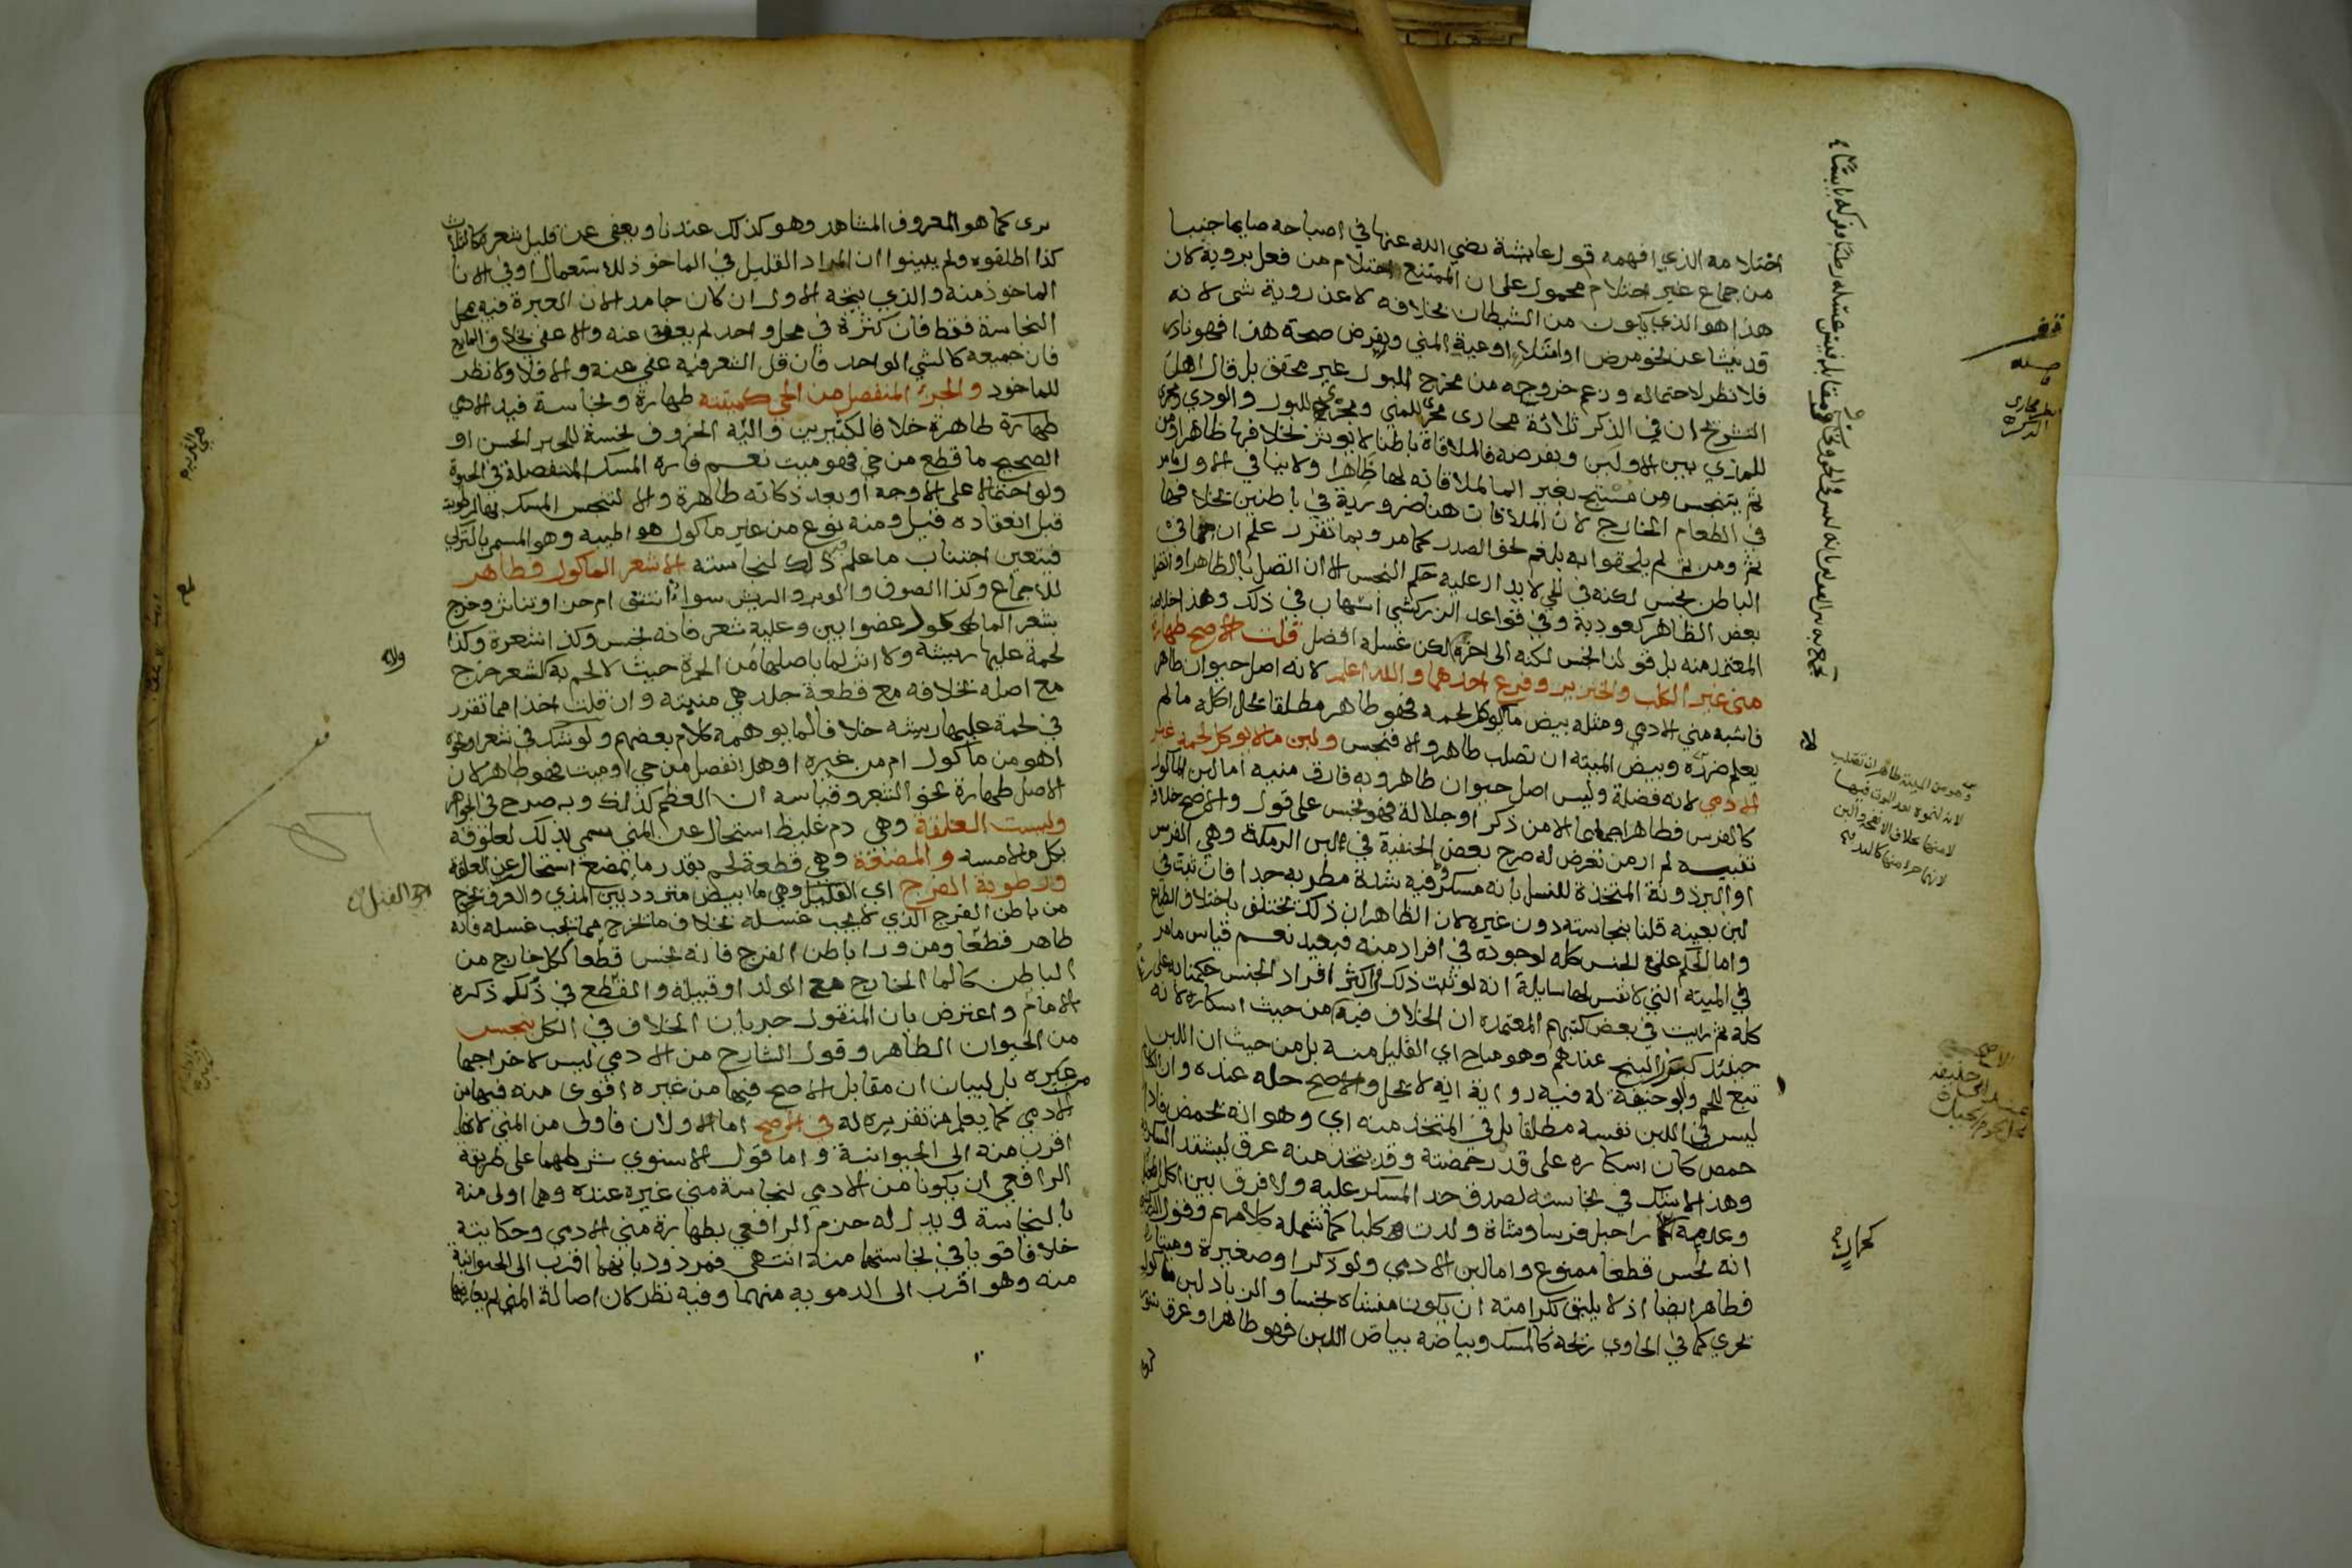 احتلامه الذي افهمه قول عايشة رضي الله عنها في اصباحه صايما جنبا
من جماع غير احتلام محمول على ان الممتنع احتلام من فعل بروية كان
هذا هو الذي يكون من الشيطان بخلافه لا عن روية شي لانه
قد ينشا عن نحو مرض او امتلاء اوعية المني وبفرض صحة هذا فهو نادر
فلا نظر لاحتماله وزعم خروجه من مخرج البول غير محقق بل قال اهل
التشريح ان في الذكر ثلاثة مجاري مجرى للمني ومجرى للبول والودي ومجرى
للمذي بين الاولين وبفرضه فالملاقاة باطنا لا تؤثر بخلافها ظاهرا ومن
ثم يتنجس من مستنج بغير الما لملاقاته لها ظاهرا ولا ينافي الاول ما مر
في الطعام الخارج لان الملاقات هنا ضرورية في باطنين بخلافها
ثم ومن ثم لم يلحقوا به بلغم نحو الصدر كما مر وبما تقرر علم ان ما في
الباطن نجس لكنه في الحي لا يدار عليه حكم النجس الا ان اتصل بالظاهر او اتصل
بعض الظاهر كعود به وفي قواعد الزركشي اشهاب في ذلك وهذا خلاصة
المعتمد منه بل قولنا نجس لكنه الى اخره لكن غسله افضل قلت الاصح طهارة
مني غير الكلب والخنزير وفرع احدهما والله اعلم لانه اصل حيوان طاهر
فاشبه مني الادمي ومثله بيض ما لا يوكل لحمه فهو طاهر مطلقا يحل اكله ما لم
يعلم ضرره وبيض الميتة ان تصلب طاهر والا فنجس ولبن ما لا يوكل لحمه غير
الادمي لانه فضلة وليس اصل حيوان طاهر وبه فارق منيه اما لبن الماكول
كالفرس فطاهر اجماعا الا من ذكر او جلالة فهو نجس على قول والاصح خلافه
تنبيه لم ار من تعرض له صرح بعض الحنفية في لبن الرمكة وهي الفرس
او البرذونة المتخذة للنسل بانه مسكر وفيه شدة مطربة جدا فان ثبت في
لبن بعينه قلنا بنجاسته دون غيره لان الظاهر ان ذلك يختلف باختلاف الطباع
واما الحكم على الجنس كله لوجوده في افراد منه فبعيد نعم قياس ما مر
في الميتة التي لا نفس لها سايلة انه لو ثبت ذلك في اكثر افراد الجنس حكمنا به على
كله ثم رايت في بعض كتبهم المعتمدة ان الخلاف فيه من حيث اسكاره لانه
حينئذ كـ البنج عندهم وهو مباح اي القليل منه بل من حيث ان اللبن
تبع للحم وابو حنيفة له فيه رواية انه لا يحل والاصح حله عنده وان
ليس في اللبن نفسه مطلقا بل في المتخذ منه اي وهو انه يحمض فاذا
حمض كان اسكاره على قدر حمضته وقد يتخذ منه عرق ليشتد
وهذا لا شك في نجاسته لصدق حد المسكر عليه ولا فرق بين
وعدمه راحيل فرسا وشاة ولدت كلبا كما شمله كلامهم وقول
انه نجس قطعا ممنوع واما لبن الادمي ولو ذكرا وصغيرة وميتا
فطاهر ايضا اذ لا يليق بكرامته ان يكون منشاه نجسا والزباد لبن ماكول
بحري كما في الحاوي ريحه كالمسك وبياضه بياض اللبن فهو طاهر او عرق سنور
بري كما هو المعروف المشاهد وهو كذلك عندنا ويعفى عن قليل شعره كالثلاث
كذا اطلقوه ولم يبينوا ان المراد القليل في الماخوذ للاستعمال او في الانا
الماخوذ منه والذي يتجه الاول ان كان جامدا لان العبرة فيه بمحل
النجاسة فقط فان كثرة في محل واحد لم يعف عنه والا عفي بخلاف المايع
فان جميعه كالشي الواحد فان قل الشعر فيه عفي عنه والا فلا ولا نظر
للماخوذ والجزء المنفصل من الحي كميتته طهارة ونجاسة فيد الادمي
طهارة طاهرة خلافا لكثيرين والية الخروف نجسة للخبر الحسن او
الصحيح ما قطع من حي فهو ميت نعم فارة المسك المنفصلة في الحيوة
ولو احتمالا على الاوجه او بعد ذكاته طاهرة والا لتنجس المسك بها لرطوبته
قبل انعقاده قيل ومنه نوع من غير ماكول هو اطيبه وهو المسمى بالتركي
فيتعين اجتناب ما علم فيه ذلك لنجاسته الا شعر الماكول فطاهر
للاجماع وكذا الصوف والوبر والريش سواء انتتف ام جز او تناثر وخرج
بشعر الماكول عضو ابين وعليه شعر فانه نجس وكذا شعره وكذا
لحمة عليها ريشة ولا اثر لما باصلها من الحمرة حيث لا لحم به كشعر خرج
مع اصله بخلافه مع قطعة جلد هي منبته وان قلت اخذا مما تقرر
في لحمة عليها ريشة خلافا لما يوهمه كلام بعضهم ولو شك في شعر او نحوه
اهو من ماكول ام من غيره او هل انفصل من حي او ميت فهو طاهر لان
الاصل طهارة نحو الشعر وقياسه ان العظم كذلك وبه صرح في الجواهر
وليست العلقة وهي دم غليظ استحال عن المني سمي بذلك لعلوقه
بكل ما لامسه والمضغة وهي قطعة لحم بقدر ما يمضغ استحال عن العلقة
ورطوبة الفرج اي القبل وهي ما ابيض متردد بين المذي والعرق يخرج
من باطن الفرج الذي لا يجب غسله بخلاف ما يخرج مما يجب غسله فانه
طاهر قطعا ومن ورا باطن الفرج فانه نجس قطعا ككل خارج من
الباطن كالما الخارج مع الولد او قبيله والقطع في ذلك ذكره
الامام واعترض بان المنقول جريان الخلاف في الكل بنجس
من الحيوان الطاهر وقول الشارح من الادمي ليس لاخراجها
من غيره بل لبيان ان مقابل الاصح فيها من غيره اقوى منه فيها من
الادمي كما يعلم من تقريره له في الاصح اما الاولان فاولى من المني لانهما
اقرب منه الى الحيوانية واما قول الاسنوي شرطهما على طريقة
الرافعي ان يكونا من الادمي لنجاسة مني غيره عنده وهما اولى منه
بالنجاسة ويدل له جزم الرافعي بطهارة مني الادمي وحكايته
خلافا قويا في نجاستهما منه انتهى فمردود بانهما اقرب الى الحيوانية
منه وهو اقرب الى الدموية منهما وفيه نظر لان اصالة المني لم يعارضها